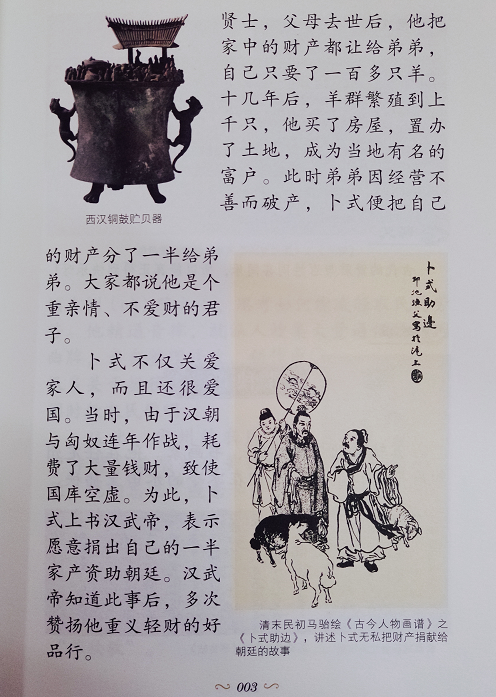 贤士，父母去世后，他把
家中的财产都让给弟弟，
自己只要了一百多只羊。
十几年后，羊群繁殖到上
千只，他买了房屋，置办
了土地，成为当地有名的
富户。此时弟弟因经营不
善而破产，卜式便把自己
西汉铜鼓贮贝器
的财产分了一半给弟
弟。大家都说他是个
重亲情、不爱财的君
子。
卜式不仅关爱
家人，而且还很爱
国。当时，由于汉朝
与匈奴连年作战，耗
费了大量钱财，致使
国库空虚。为此，卜
式上书汉武帝，表示
愿意捐出自己的一半
家产资助朝廷。汉武
帝知道此事后，多次
赞扬他重义轻财的好
品行。
卜式助边
邛池渔父写于沪上
清末民初马骀绘《古今人物画谱》之
《卜式助边》，讲述卜式无私把财产捐献给
朝廷的故事
003